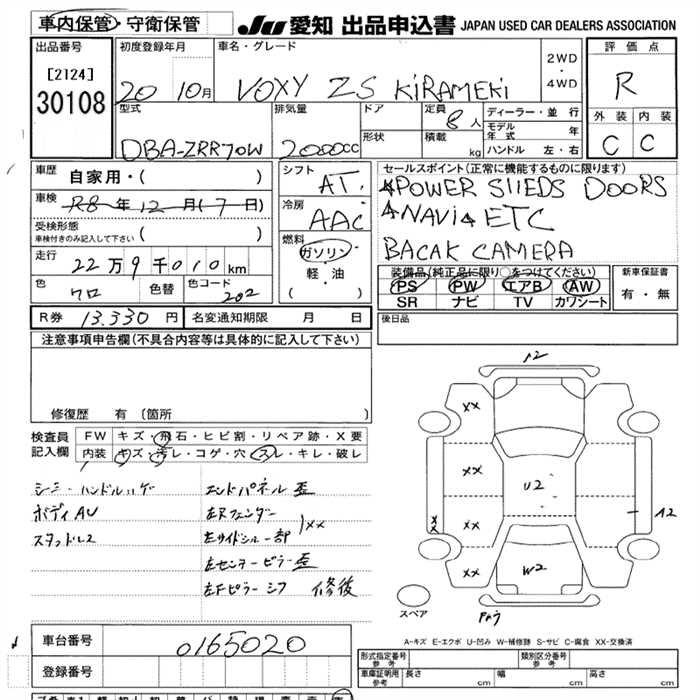 車内保管・守衛保管
JU 愛知 出品申込書 JAPAN USED CAR DEALERS ASSOCIATION
出品番号
[2124]
30108
初度登録年月
20 10月
車名・グレード
VOXY ZS KiRAMEKi
2WD
・
4WD
評価点
R
型式
DBA-ZRR70W
排気量
2000cc
ドア
形状
定員 8人
積載 kg
ディーラー・並行
モデル年式 年
ハンドル 左・右
外装 内装
C C
車歴 自家用・( )
車検 R8年12月(7日)
受検形態
車検付きのみ記入して下さい ( )
走行 22万9千010km
色 クロ 色替 色コード 202
シフト AT
冷房 AAC
燃料
ガソリン
・
軽・油
( )
セールスポイント(正常に機能するものに限ります)
POWER SLIEDS DOORS
NAVi ETC
BACAK CAMERA
装備品(純正品に限り○をつけてください)
PS PW エアB AW
SR ナビ TV カワシート
新車保証書
有・無
R券 13.330円 名変通知期限 月 日
後日品
注意事項申告欄(不具合内容等は具体的に記入して下さい)
修復歴 有 〔箇所
検査員記入欄
FW キズ・飛石・ヒビ割・リペア跡・X要
内装 キズ・汚レ・コゲ・穴・スレ・キレ・破レ
シミ ハンドルハゲ
ボディAU
スタッドレス
エンドパネル歪
左Rフェンダー
左サイドシル一部 XX
左センターピラー歪
左Fピラーシワ 修復
A2
XX
XX
XX
XX
XX
U2
W2
A2
スペア
A-キズ E-エクボ U-凹み W-補修跡 S-サビ C-腐食 XX-交換済
車台番号 0165020
登録番号
形式指定番号
参考
類別区分番号
参考
車庫証明用
参考
長さ cm 幅 cm 高さ cm